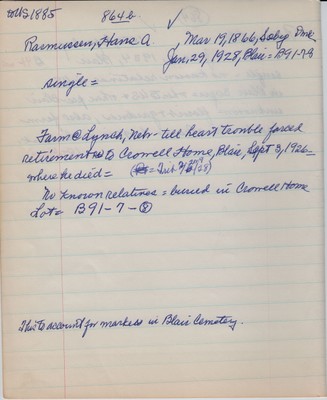 to US 1885 864b ✓
Rasmussen, Hans A Mar 19, 1866, Soby Dmk
Jan, 29, 1928, Blair = B91-7-8
single =
Farm @ Lynch, Nebr - till heart trouble forced
retirement to Crowell Home, Blair, Sept 3, 1926 -
where he died =
No known relatives = buried in Crowell Home
Lot = B91-7-⑧
This to account for markers in Blair Cemetery.